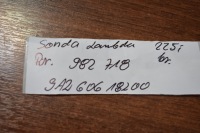 Sonda Lambda 225i
Nr. 982 718 br.
9AD 606 18200